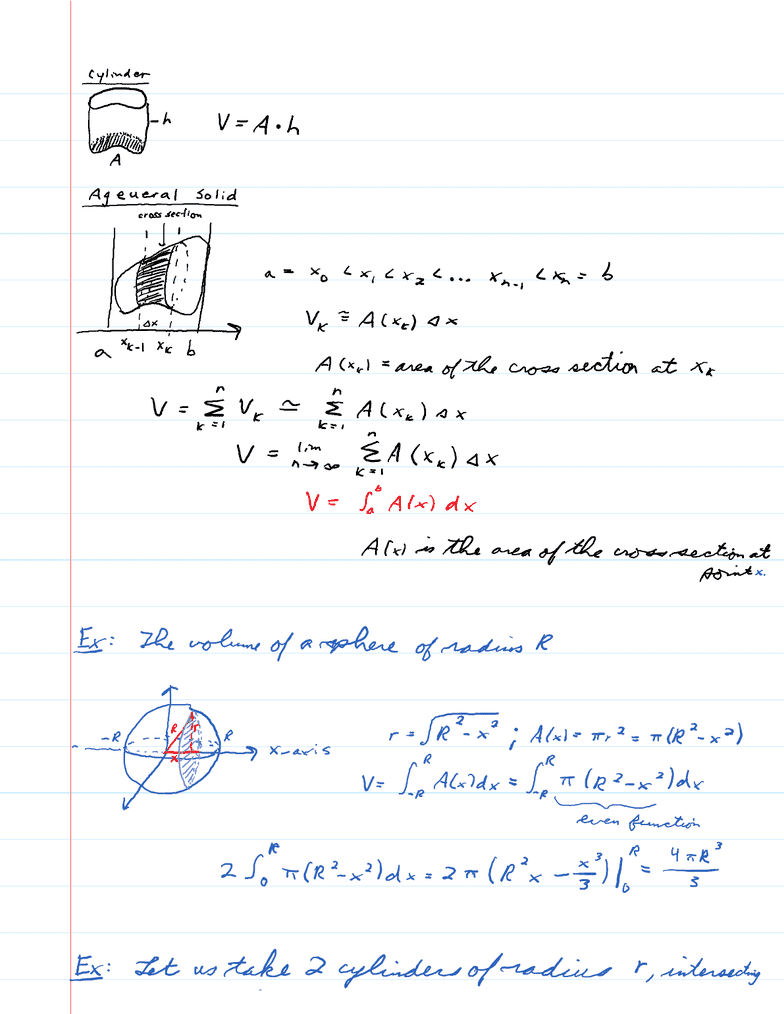 Cylinder
h
V = A · h
A
A general Solid
cross section
a = x₀ < x₁ < x₂ < ... xₙ₋₁ < xₙ = b
Δx
Vₖ ≅ A(xₖ) Δx
a xₖ₋₁ xₖ b
A(xₖ) = area of the cross section at xₖ
V = Σₖ₌₁ⁿ Vₖ ≃ Σₖ₌₁ⁿ A(xₖ) Δx
V = lim n→∞ Σₖ₌₁ⁿ A(xₖ) Δx
V = ∫ₐᵇ A(x) dx
A(x) is the area of the cross section at
point x.
Ex: The volume of a sphere of radius R
-R R r R x x-axis
r = √(R² - x²) ; A(x) = πr² = π(R² - x²)
V = ∫₋ᴿᴿ A(x) dx = ∫₋ᴿᴿ π(R² - x²) dx
even function
2 ∫₀ᴿ π(R² - x²) dx = 2π (R²x - x³/3) |₀ᴿ = 4πR³/3
Ex: Let us take 2 cylinders of radius r, intersecting